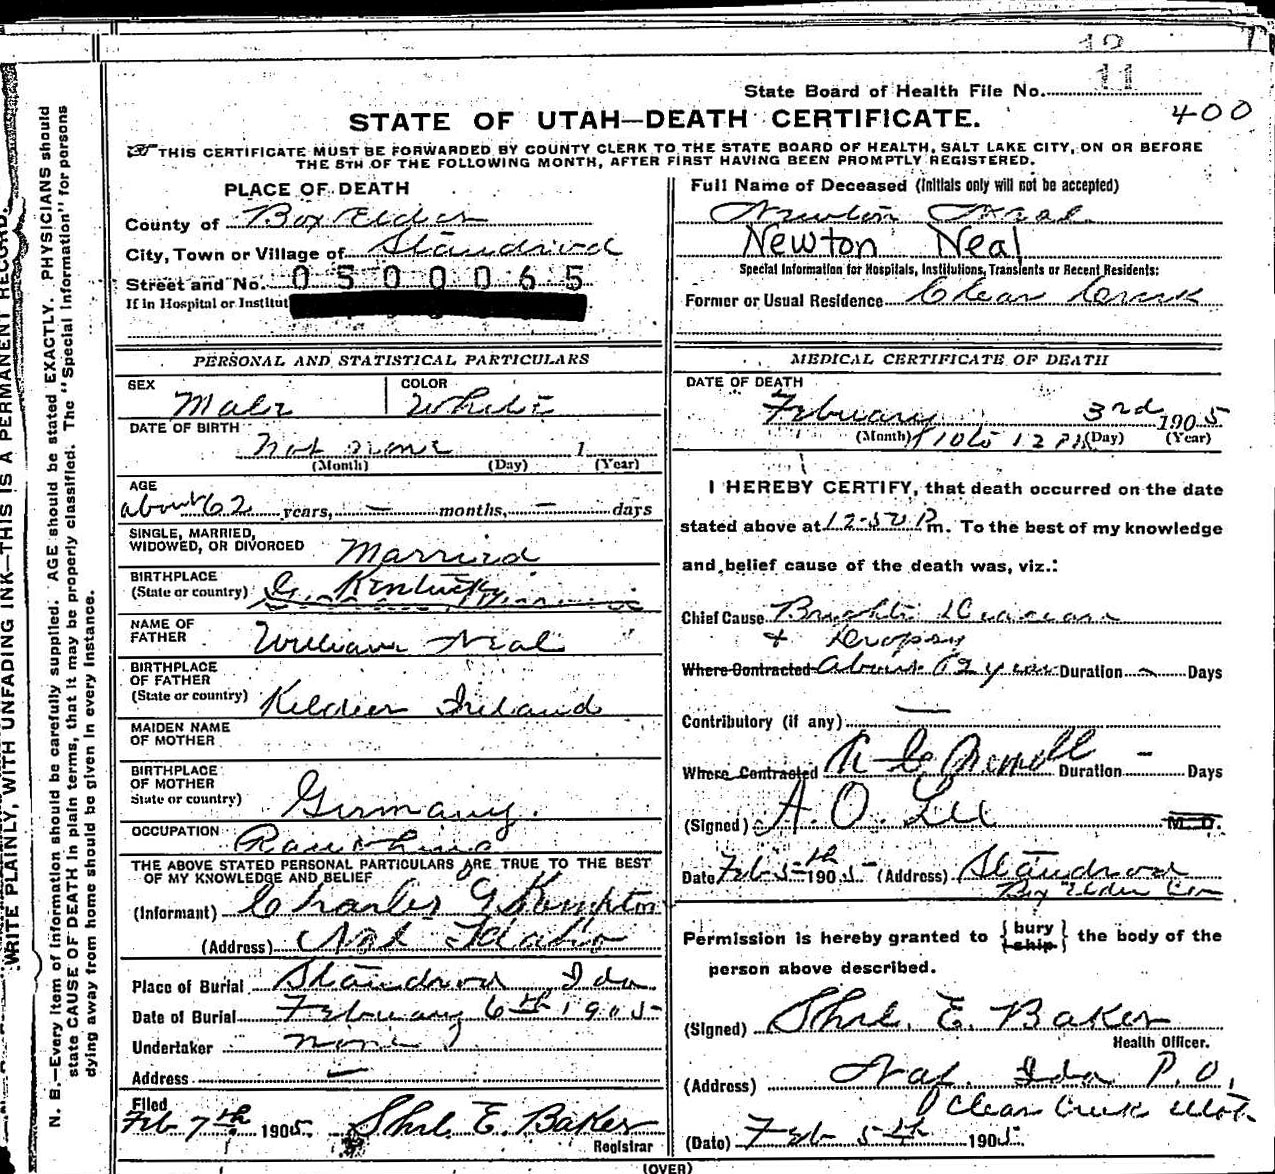 12
11
State Board of Health File No.
STATE OF UTAH—DEATH CERTIFICATE.
400
☞ THIS CERTIFICATE MUST BE FORWARDED BY COUNTY CLERK TO THE STATE BOARD OF HEALTH, SALT LAKE CITY, ON OR BEFORE
THE 5TH OF THE FOLLOWING MONTH, AFTER FIRST HAVING BEEN PROMPTLY REGISTERED.
WRITE PLAINLY, WITH UNFADING INK—THIS IS A PERMANENT RECORD.
N. B.—Every item of information should be carefully supplied. AGE should be stated EXACTLY. PHYSICIANS should
state CAUSE OF DEATH in plain terms, that it may be properly classified. The "Special Information" for persons
dying away from home should be given in every instance.
PLACE OF DEATH
County of Box Elder
City, Town or Village of Standrod
Street and No. 0500065
If in Hospital or Institut
Full Name of Deceased (Initials only will not be accepted)
Newton Neal
Newton Neal
Special Information for Hospitals, Institutions, Transients or Recent Residents:
Former or Usual Residence Clear Creek
PERSONAL AND STATISTICAL PARTICULARS
SEX Male
COLOR White
DATE OF BIRTH
1
(Month) (Day) (Year)
AGE
about 62 years, — months, — days
SINGLE, MARRIED,
WIDOWED, OR DIVORCED Married
BIRTHPLACE
(State or country) Kentucky
NAME OF
FATHER William Neal
BIRTHPLACE
OF FATHER
(State or country) Ireland
MAIDEN NAME
OF MOTHER
BIRTHPLACE
OF MOTHER
State or country) Germany.
OCCUPATION Ranching
THE ABOVE STATED PERSONAL PARTICULARS ARE TRUE TO THE BEST
OF MY KNOWLEDGE AND BELIEF
(Informant) Charles G Kempton
(Address) Naf Idaho
Place of Burial Standrod Ida.
Date of Burial February 6th 1905
Undertaker none
Address —
Filed
Feb 7th 1905. E. Baker
Registrar
MEDICAL CERTIFICATE OF DEATH
DATE OF DEATH
February 3rd 1905
(Month) (Day) (Year)
I HEREBY CERTIFY, that death occurred on the date
stated above at 12-50 Pm. To the best of my knowledge
and belief cause of the death was, viz.:
Chief Cause Brights Disease
+ Dropsy
Where Contracted about years Duration Days
Contributory (if any) —
Where Contracted Duration - Days
(Signed) A. O. Lee M. D.
Date Feb 5th 1905 (Address) Standrod
Box Elder Con
Permission is hereby granted to { bury ship } the body of the
person above described.
(Signed) E. Baker
Health Officer.
(Address) Naf. Ida P.O.
Clear Creek Utah
(Date) Feb 5th 1905.
(OVER)